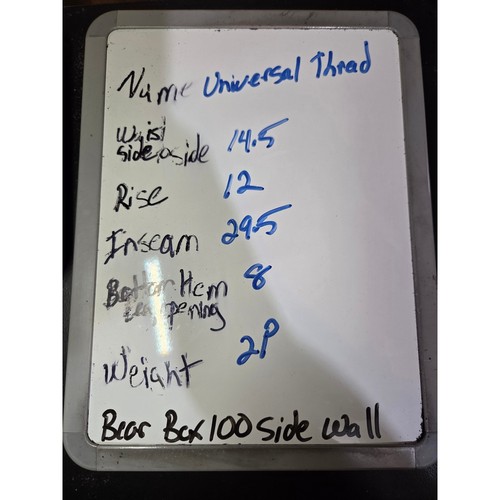 Name Universal Thread
Waist
side to side 14.5
Rise 12
Inseam 29.5
Bottom Hem 8
Leg opening
Weight 2P
Bear Box 100 side wall